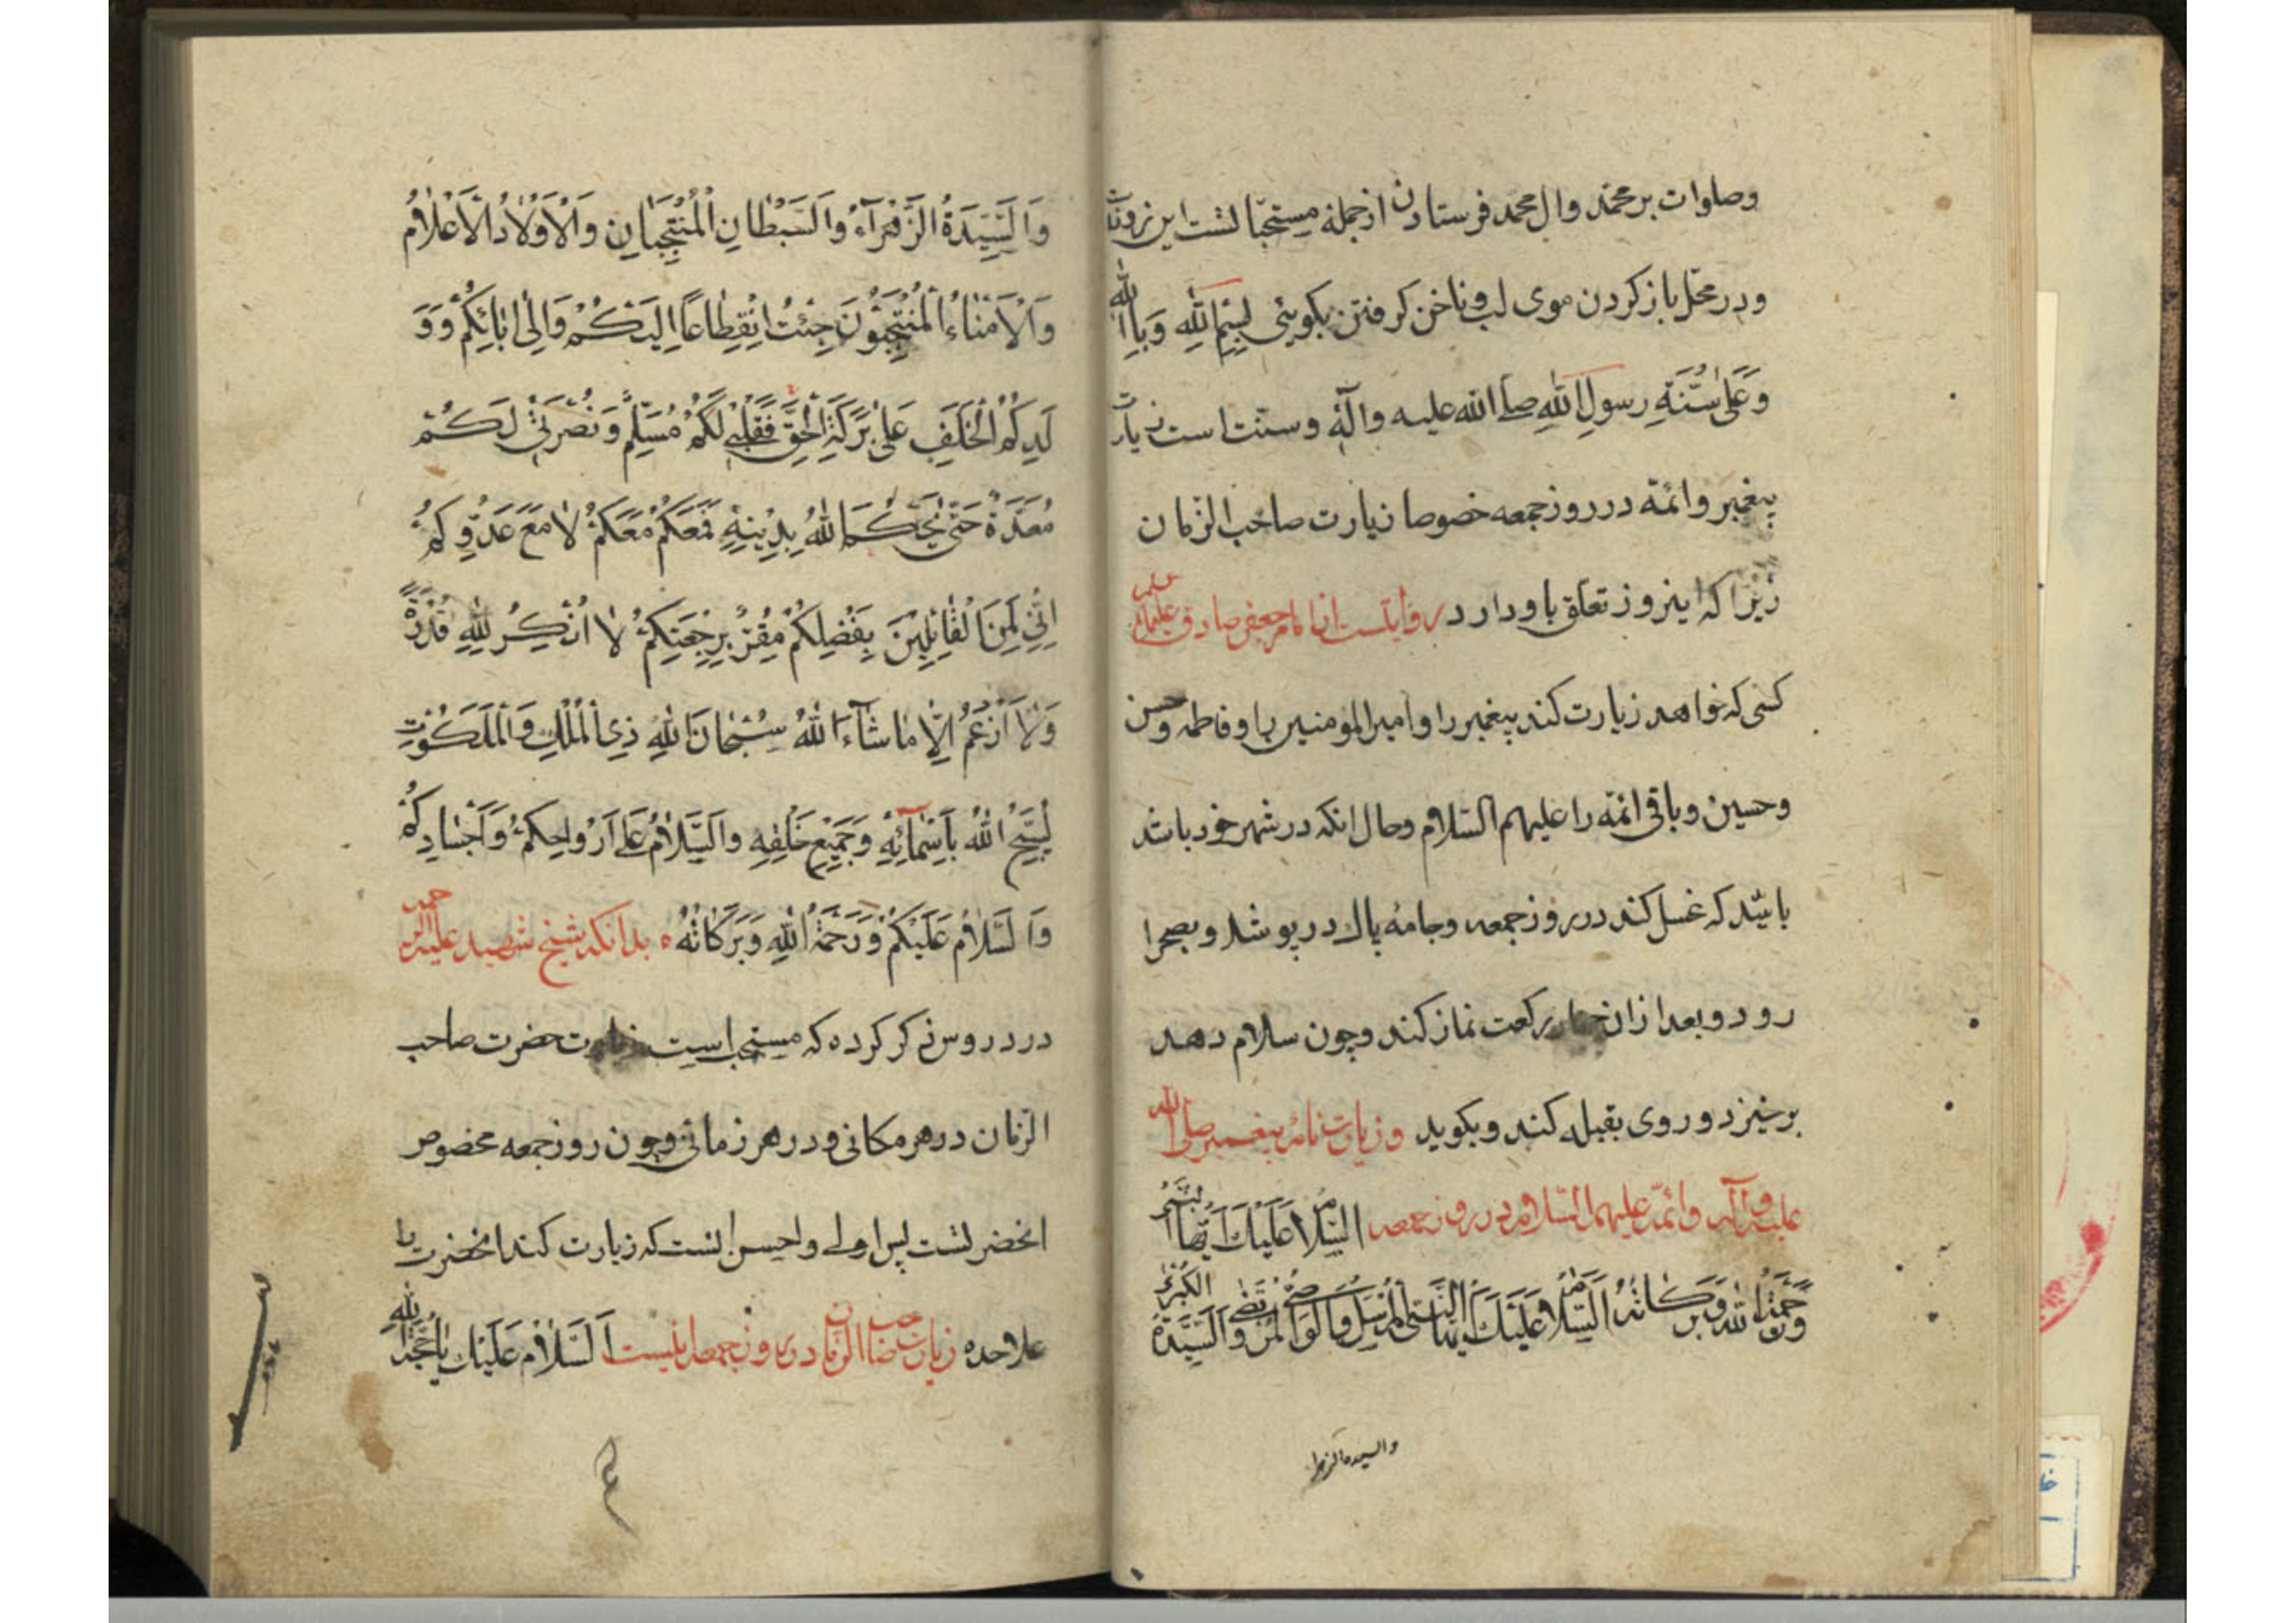 وصلوات بر محمد وال محمد فرستادن از جمله مستحبّاتست این روز
ودر محل باز کردن موی لب وناخن کرفتن بکوئی بِسْمِ اللهِ وَبِاللهِ
وَعَلى سُنَّةِ رسولِ اللهِ صلى الله عليه وآله وسنت است زیارت
پیغمبر وائمّه در روز جمعه خصوصا زیارت صاحب الزمان
زیرا که اینروز تعلق باو دارد روایتست از امام جعفر صادق علیه
کسی که خواهد زیارت کند پیغمبر را وامیرالمومنین را وفاطمه وحسن
وحسین وباقی ائمّه را علیهم السّلام وحال انکه در شهر خود باشد
باید که غسل کند در روز جمعه وجامهٔ پاک در پوشد وبصحرا
رود وبعد از ان چهار رکعت نماز کند وچون سلام دهد
برخیزد وروی بقبله کند وبکوید وزیارت نامهٔ پیغمبر صلى الله
علیه وآله وائمّه علیهم السّلام در روز جمعه السَّلامُ عَلَيْكَ اَيُّهَا النَّبِيُّ
وَرَحْمَةُ اللهِ وَبَرَكاتُهُ اَلسَّلامُ عَلَيْكَ اَيُّهَا النَّبِيُّ الْمُرْسَلُ وَالْوَصِيُّ الْمُرْتَضى وَالسَّيِّدَةُ الْكُبْرى
والسيدة الزهرا
وَالسَّيِّدَةُ الزَّهْرَآءُ وَالسِّبْطانِ الْمُنْتَجَبانِ وَالْاَوْلادُ الْاَعْلامُ
وَالْاُمَناءُ الْمُنْتَجَبُونَ جِئْتُ انْقِطاعًا اِلَيْكُمْ وَاِلى ابائِكُمْ وَوَ
لَدِكُمُ الْخَلَفِ عَلى بَرَكَةِ الْحَقِّ فَقَلْبِي لَكُمْ مُسَلِّمٌ وَنُصْرَتِي لَكُمْ
مُعَدَّةٌ حَتّى يَحْكُمَ اللهُ بِدِينِهِ فَمَعَكُمْ مَعَكُمْ لا مَعَ عَدُوِّكُمْ
اِنِّي لَمِنَ الْقائِلِينَ بِفَضْلِكُمْ مُقِرٌّ بِرَجْعَتِكُمْ لا اُنْكِرُ لِلّهِ قُدْرَةً
وَلا اَزْعَمُ اِلّا ما شآءَ اللهُ سُبْحانَ اللهِ ذِي الْمُلْكِ وَالْمَلَكُوتِ
يُسَبِّحُ اللهَ بِاَسْمائِهِ وَجَمِيعُ خَلْقِهِ وَالسَّلامُ عَلى اَرْواحِكُمْ وَاَجْسادِكُمْ
وَالسَّلامُ عَلَيْكُمْ وَرَحْمَةُ اللهِ وَبَرَكاتُهُ ٥ بدانکه شیخ شهید علیه الرحمه
در دروس ذکر کرده که مستحب است زیارت حضرت صاحب
الزمان در هر مکانی ودر هر زمانی وچون روز جمعه مخصوص
انحضرتست پس اولی واحسن انست که زیارت کند انحضرت را
علاحده زیارت صاحب الزمان در روز جمعه اینست اَلسَّلامُ عَلَيْكَ يا حُجَّةَ اللهِ